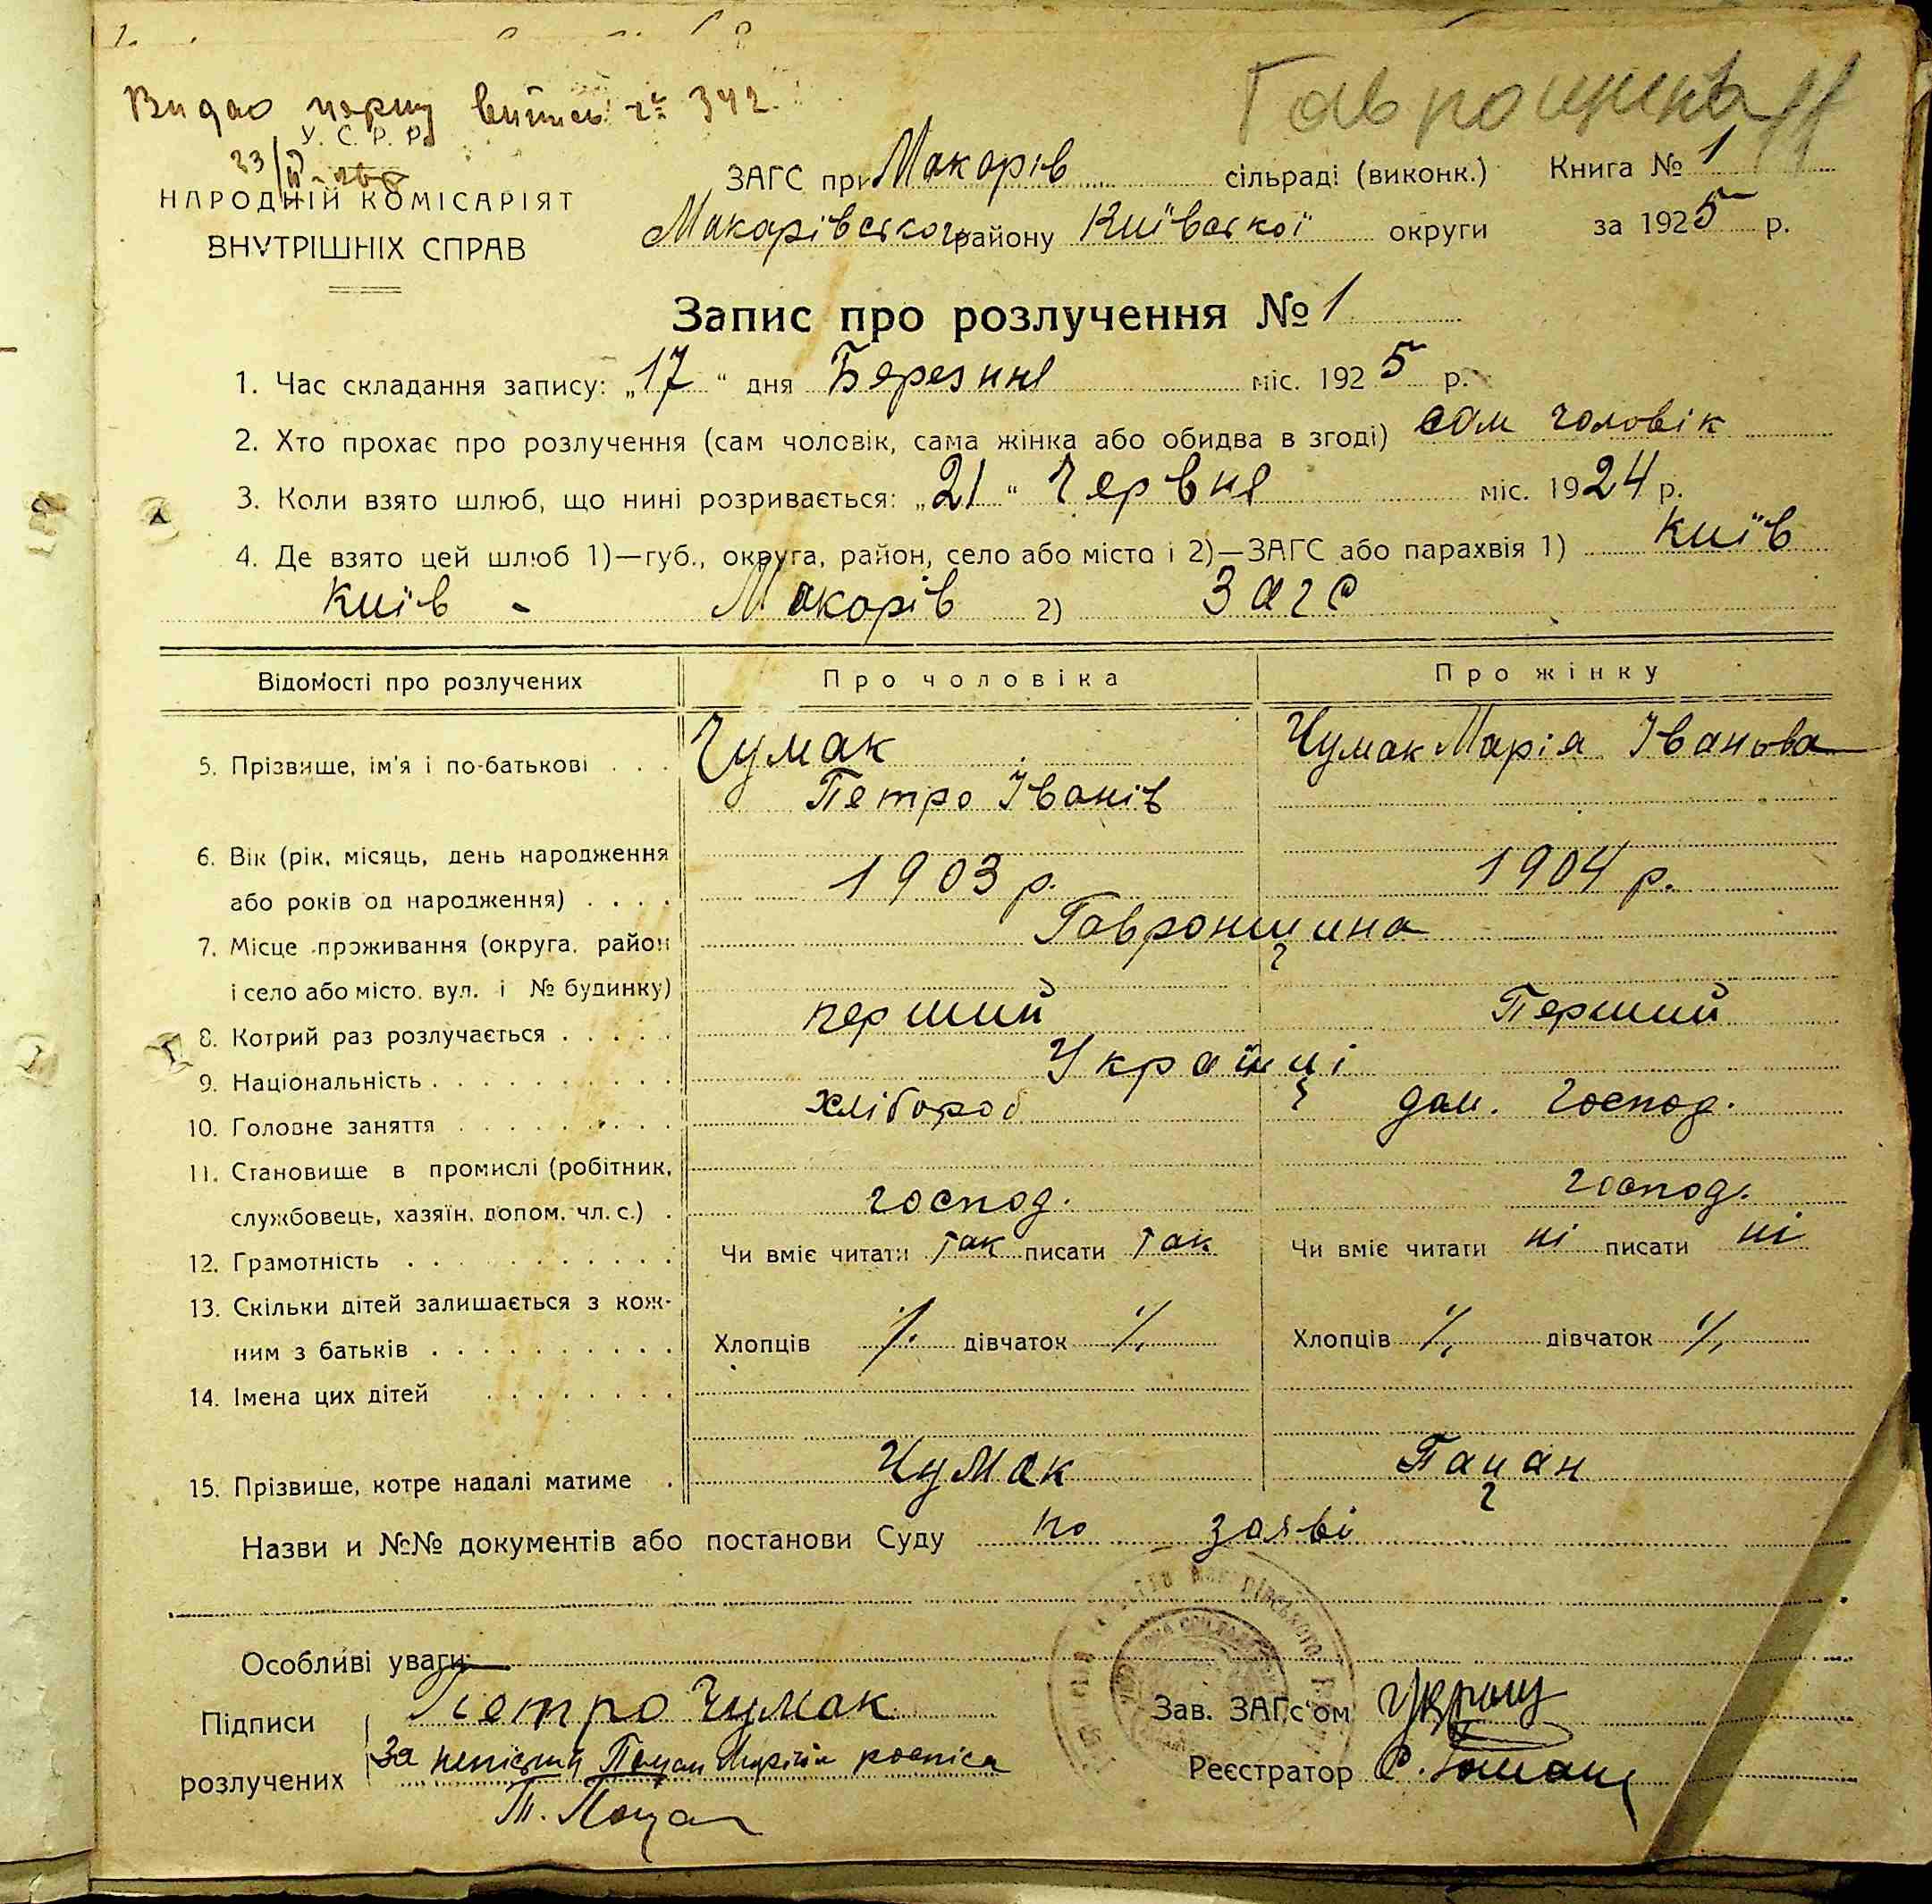 Гаврощина
Видав першу витись № 342
У. С. Р. Р.
23/
НАРОДНІЙ КОМІСАРІЯТ
ВНУТРІШНІХ СПРАВ
ЗАГС при Макарів сільраді (виконк.) Книга № 1
Макарівського району Київської округи за 1925 р.
Запис про розлучення № 1
1. Час складання запису: „17" дня Березня міс. 1925 р.
2. Хто прохає про розлучення (сам чоловік, сама жінка або обидва в згоді) сам чоловік
3. Коли взято шлюб, що нині розривається: „21" Червня міс. 1924 р.
4. Де взято цей шлюб 1)—губ., округа, район, село або місто і 2)—ЗАГС або парахвія 1) Київ
Київ - Макарів 2) Загс
Відомості про розлучених Про чоловіка Про жінку
5. Прізвище, ім'я і по-батькові . . . Чумак Чумак Марія Іванова
Петро Іванів
6. Вік (рік, місяць, день народження
або років од народження) . . . . 1903 р. 1904 р.
7. Місце проживання (округа, район Гавронщина
і село або місто, вул. і № будинку)
8. Котрий раз розлучається . . . . . перший Перший
9. Національність . . . . . . . . . . Українці
10. Головне заняття . . . . . . . . . хлібороб дом. господ.
11. Становище в промислі (робітник,
службовець, хазяїн, допом. чл. с.) . господ. господ.
12. Грамотність . . . . . . . . . . . Чи вміє читати так писати так Чи вміє читати ні писати ні
13. Скільки дітей залишається з кож-
ним з батьків . . . . . . . . . . Хлопців ⁒ дівчаток ⁒ Хлопців ⁒ дівчаток ⁒
14. Імена цих дітей . . . . . . . .
15. Прізвище, котре надалі матиме . Чумак Пацан
Назви и №№ документів або постанови Суду по заяві
Особливі уваги:
Підписи Петро Чумак Зав. ЗАГс'ом
розлучених За неписьм Пацан Марію росписа Реєстратор
Т. Пацан